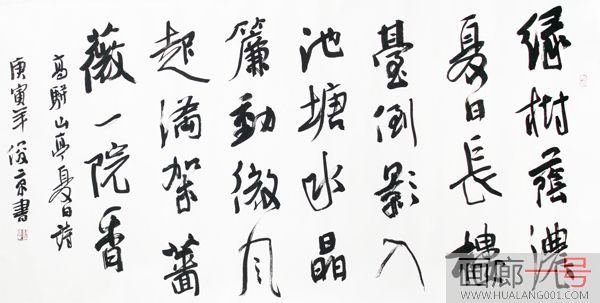 緑樹蔭濃
夏日長樓
臺倒影入
池塘水晶
簾動微風
起滿架薔
薇一院香
高駢山亭夏日詩
庚寅年俊京書
画廊一号
WWW.HUALANG001.COM